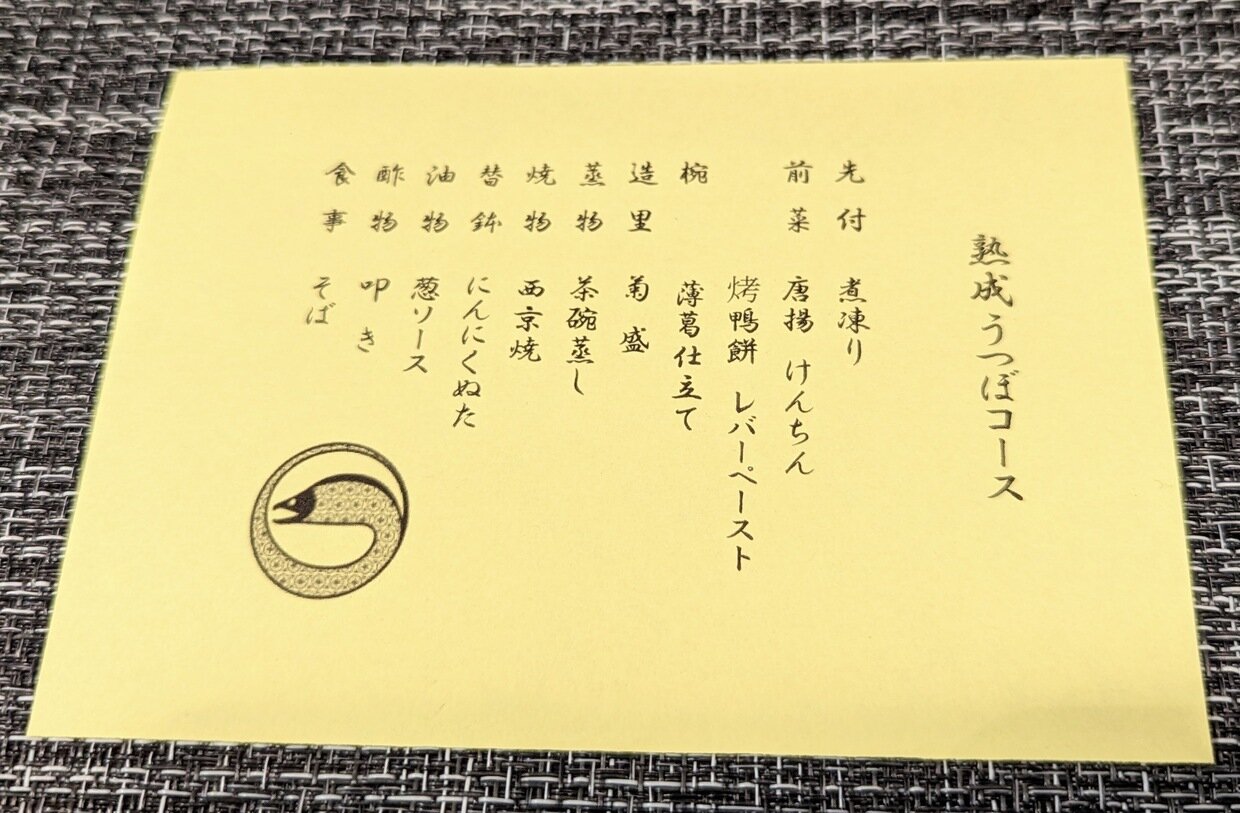 熟成うつぼコース
先付 煮凍り
前菜 唐揚 けんちん
烤鴨餅 レバーペースト
椀 薄葛仕立て
造里 菊盛
蒸物 茶碗蒸し
焼物 西京焼
替鉢 にんにくぬた
油物 葱ソース
酢物 叩き
食事 そば